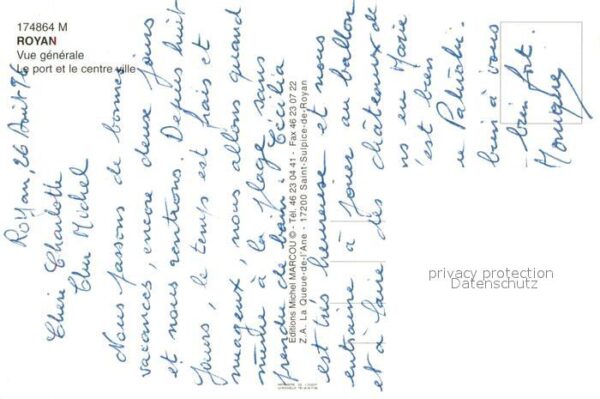 174864 M
ROYAN
Vue générale
Le port et le centre ville
Royan, 26 Août 96
Chère Charlotte
Cher Michel
Nous passons de bonnes
vacances, encore deux jours
et nous rentrons. Depuis huit
jours, le temps est frais et
nuageux, nous allons quand
même à la plage sans
prendre de bain. Cécilia
est très heureuse et nous
entraine à jouer au ballon
et à faire des châteaux de
ns en Marie
'est bien
ie Patricia.
bien à vous
bien fort.
Monique
Editions Michel MARCOU © - Tél. 46 23 04 41 - Fax 46 23 07 22
Z.A. La Queue-de-l'Ane - 17200 Saint-Sulpice-de-Royan
privacy protection
Datenschutz